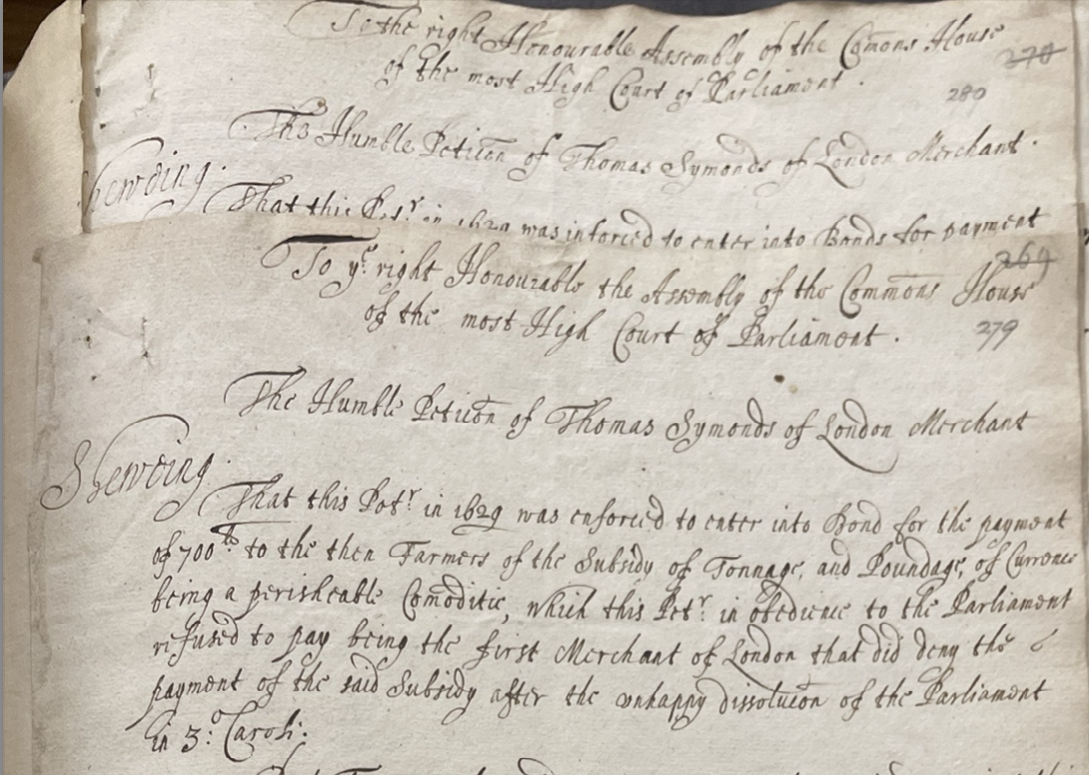 To the right Honourable Assembly of the Comons House
270
of the most High Court of Parliament.
280
The Humble Petic̄on of Thomas Symonds of London Merchant.
hewding.
That this Petr. in 1629 was inforced to enter into Bonds for payment
To ye. right Honourable the Assembly of the Com̄ons House
269
of the most High Court of Parliament.
279
The Humble Petic̄on of Thomas Symonds of London Merchant
Shewding.
That this Petr. in 1629 was enforced to enter into Bond for the payment
of 700li. to the then Farmers of the Subsidy of Tonnage, and Poundage, of Currence
being a perisheable Comoditie, which this Petr. in obedience to the Parliament
refused to pay being the first Merchant of London that did deny the
payment of the said Subsidy after the unhappy dissoluc̄on of the Parliament
in 3o. Caroli.